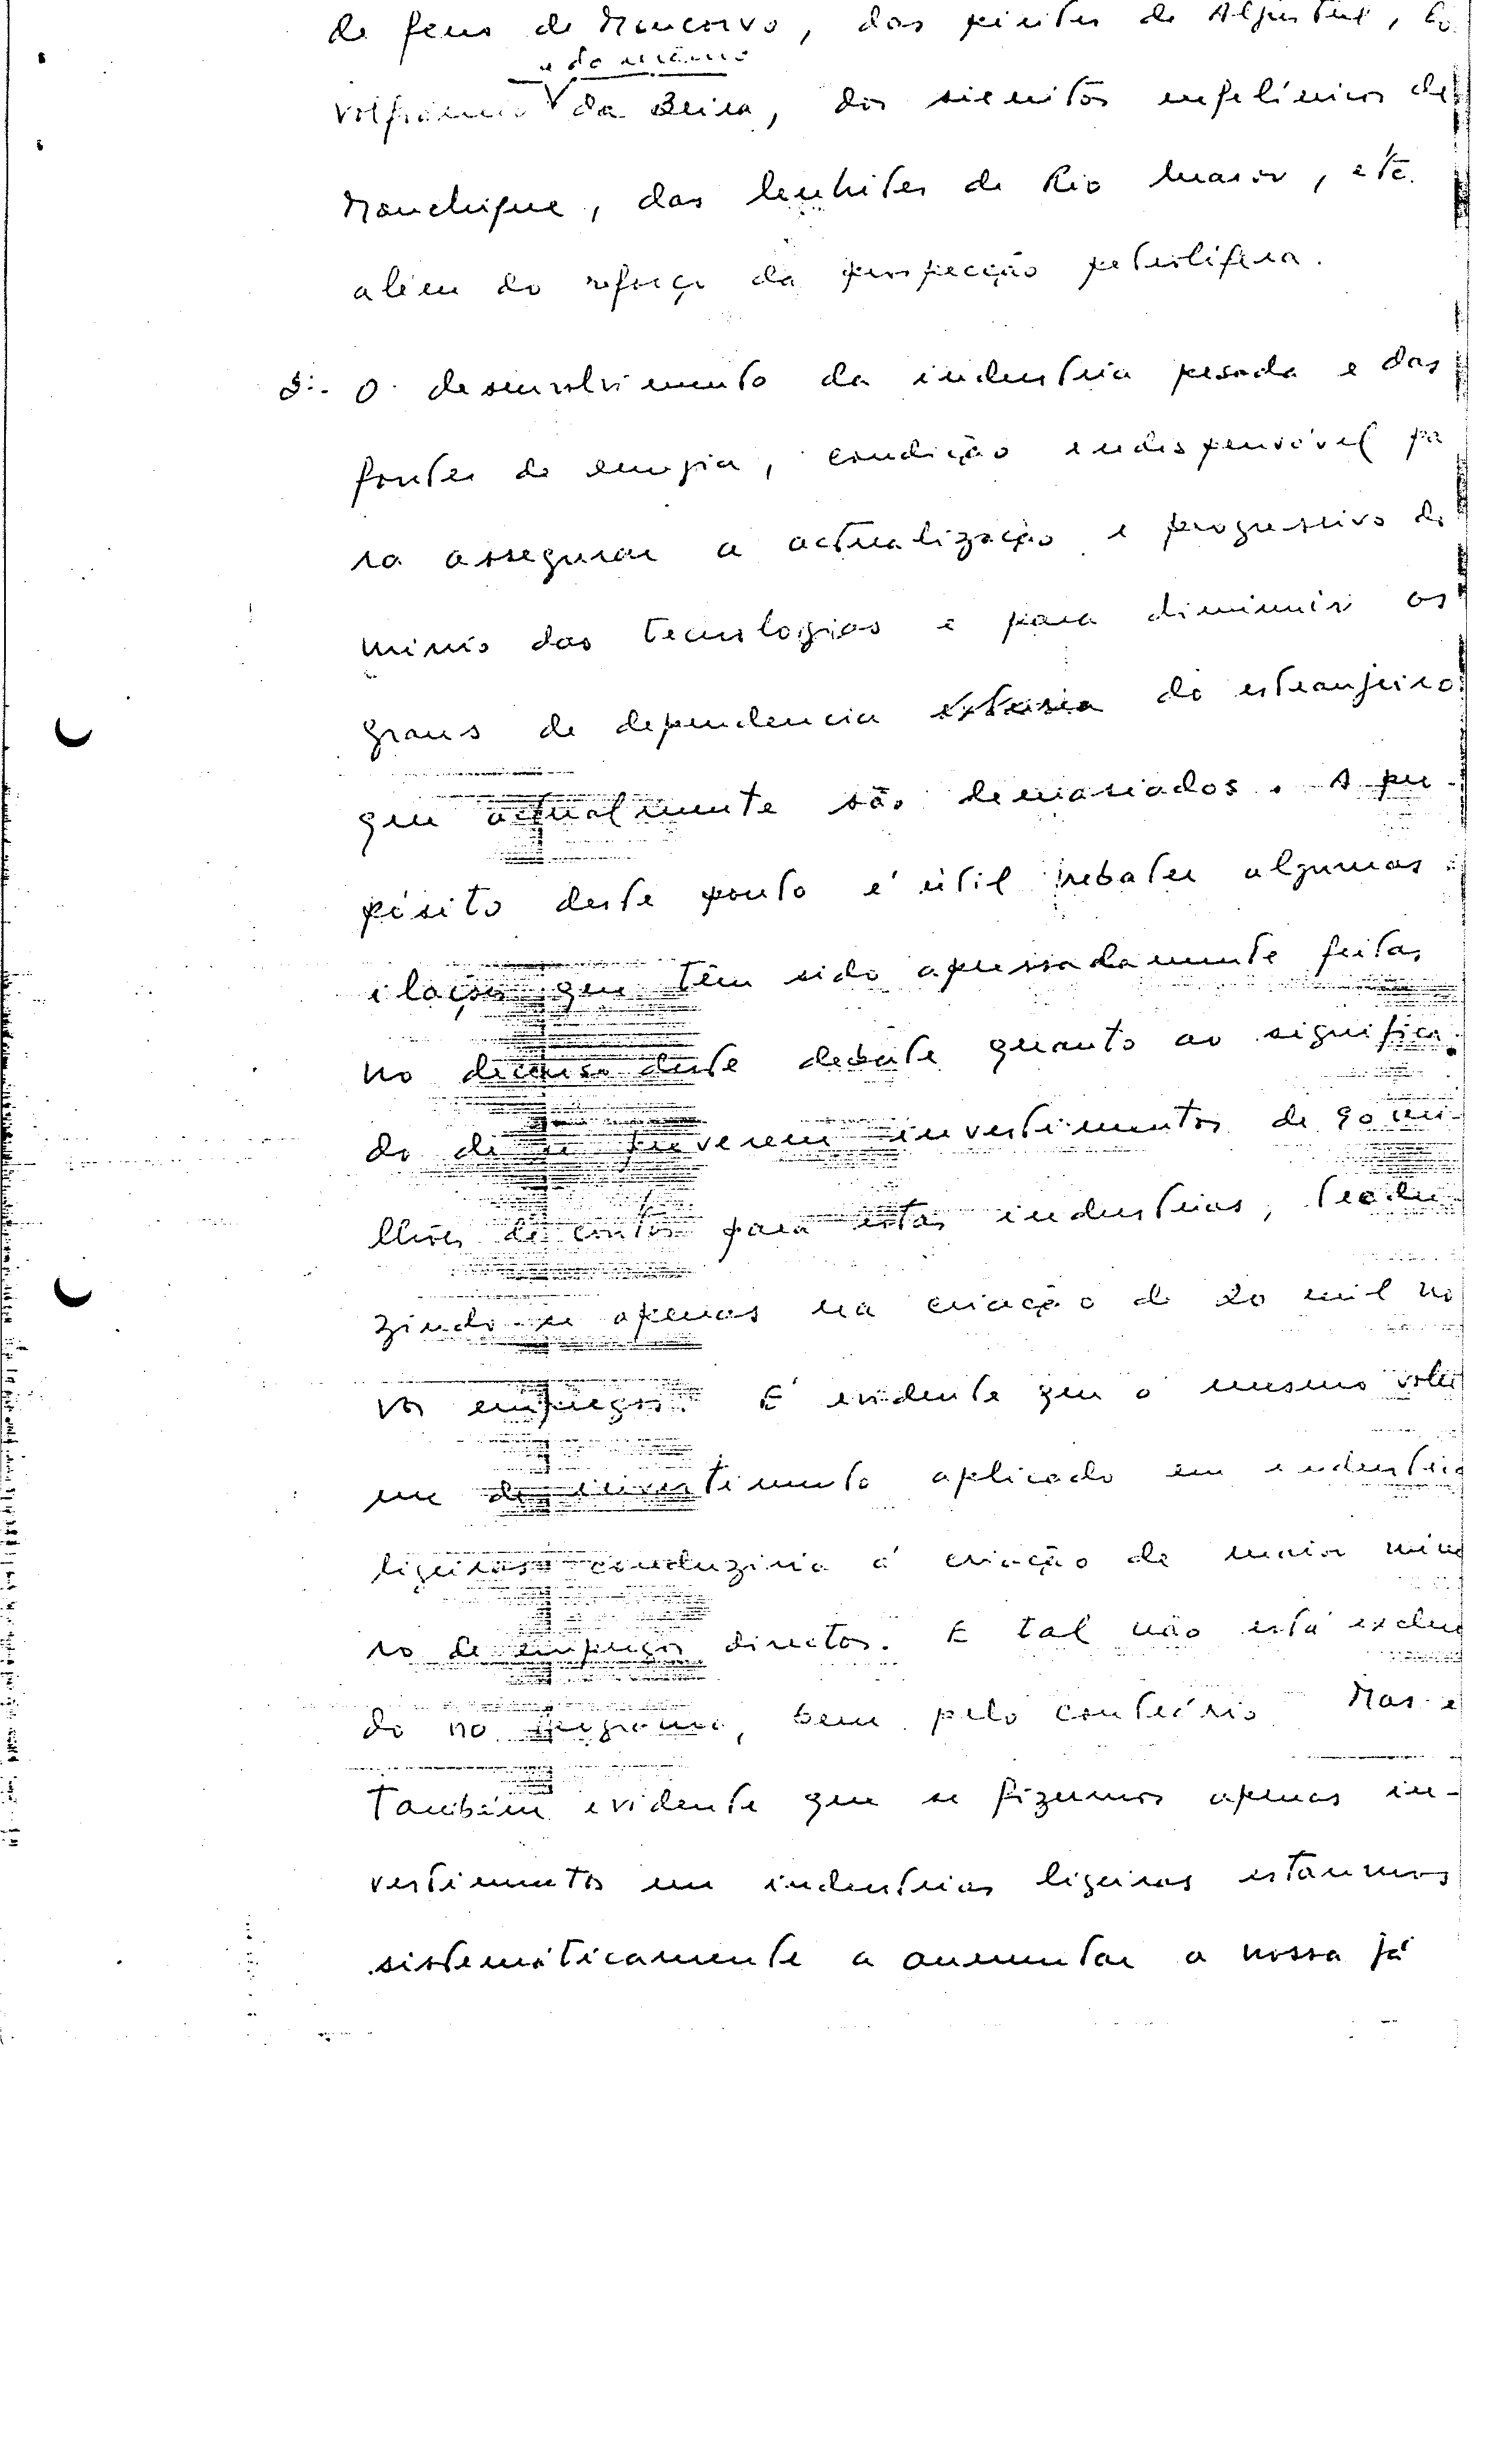 de ferro de Moncorvo, das pirites de Aljustrel, do
e do urânio
volfrâmio da Beira, dos sienitos nefelínicos de
Monchique, das lenhites de Rio Maior, etc.
além do reforço da prospecção petrolífera.
3:. O desenvolvimento da industria pesada e das
fontes de energia, condição indispensável pa
ra assegurar a actualização e progressivo do
minio das tecnologias e para diminuir os
graus de dependencia externa do estranjeiro
que actualmente são demasiados. A pro-
pósito deste ponto é útil rebater algumas
ilações que têm sido apressadamente feitas
no decurso deste debate quanto ao significa
do de se preverem investimentos de 90 mi-
lhões de contos para estas industrias, tradu
zindo-se apenas na criação de 20 mil no
vos empregos. É evidente que o mesmo volu
me de investimento aplicado em industria
ligeiras conduziria á criação de maior nume
ro de empregos directos. E tal não está exclui
do no programa, bem pelo contrário Mas é
também evidente que se fizermos apenas in-
vestimentos em industrias ligeiras estaremos
sistemáticamente a aumentar a nossa já